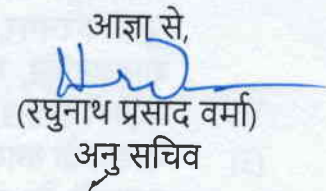 आज्ञा से,
(रघुनाथ प्रसाद वर्मा)
अनु सचिव